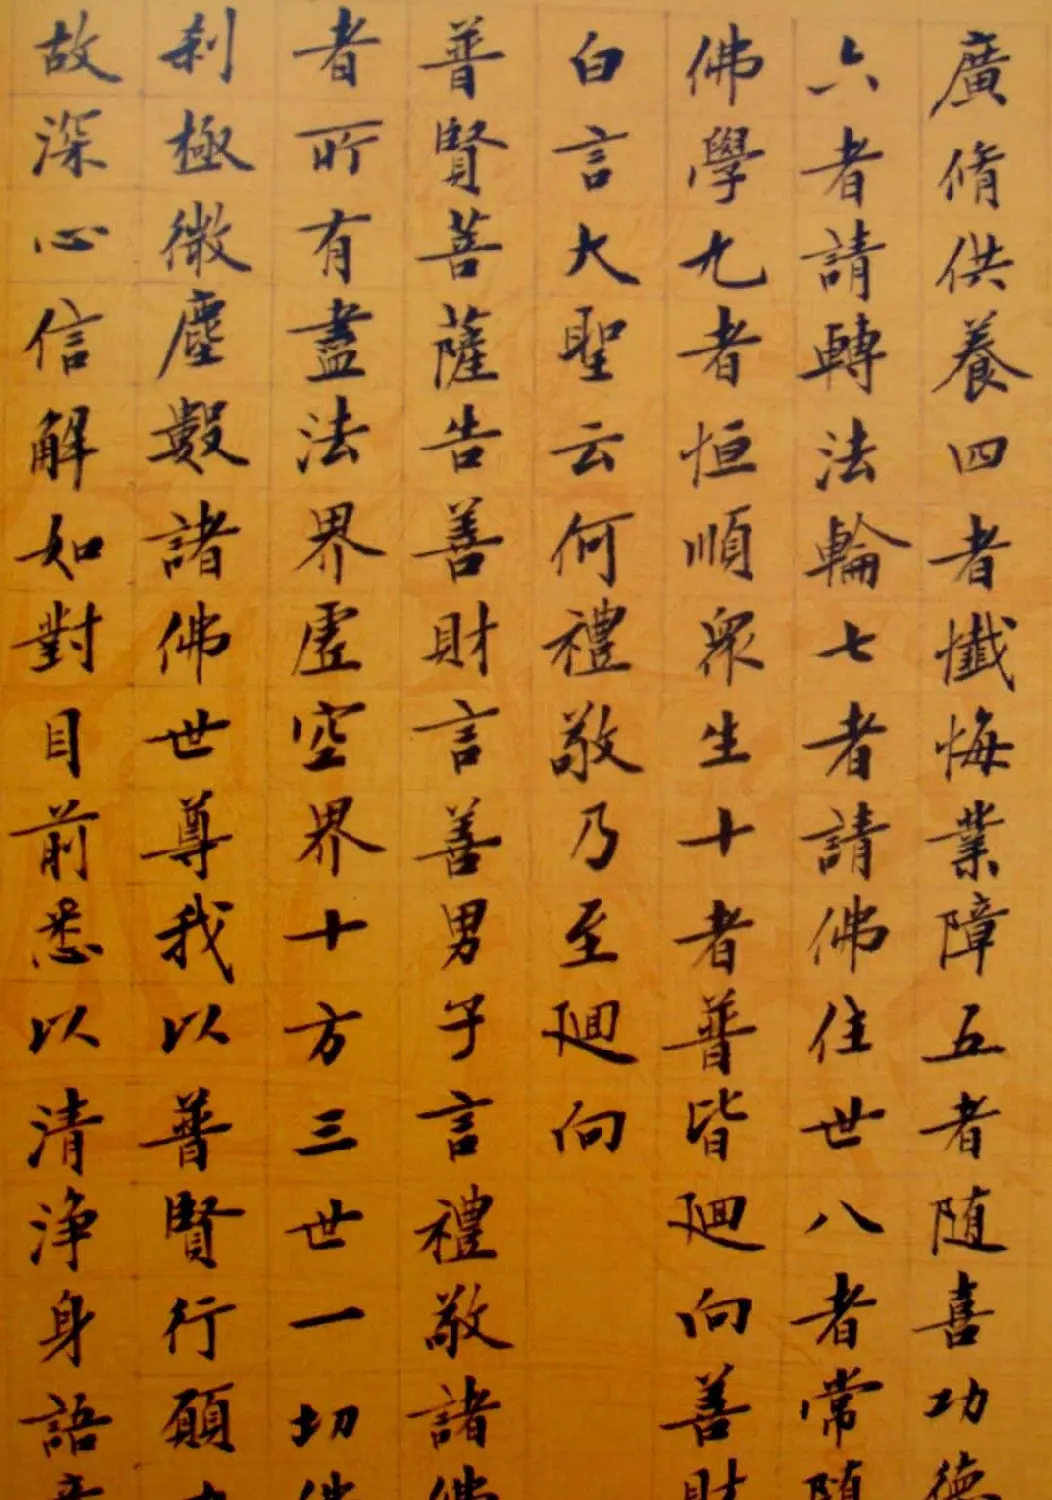 廣脩供養四者懺悔業障五者随喜功德
六者請轉法輪七者請佛住世八者常随
佛學九者恒順眾生十者普皆廻向善財
白言大聖云何禮敬乃至廻向
普賢菩薩告善財言善男子言禮敬諸佛
者所有盡法界虛空界十方三世一切佛
刹極微塵數諸佛世尊我以普賢行願
故深心信解如對目前悉以清淨身語意